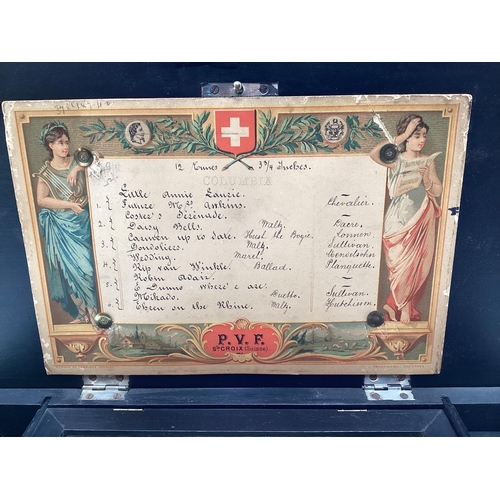 12 Tunes 3 3/4 Inches.
COLUMBIA
1. 1 Little Annie Laurie. —
2 Future Mrs. Awkins. Chevalier.
2. 1 Coster's Serenade. —
2 Daisy Bells. Waltz. Dacre.
3. 1 Carmen up to date. Hoist the Bogie. Lonnen
2 Gondoliers. Waltz. Sullivan.
4. 1 Wedding. March. Mendelsohn
2 Rip van Winkle. Ballad. Planquette.
5. 1 Robin Adair. —
2 E Dunno where'e are. —
6. 1 Mikado. Duetto. Sullivan.
2 Over on the Rhine. Waltz. Hutchison.
P. V. F.
STE CROIX (SUISSE)